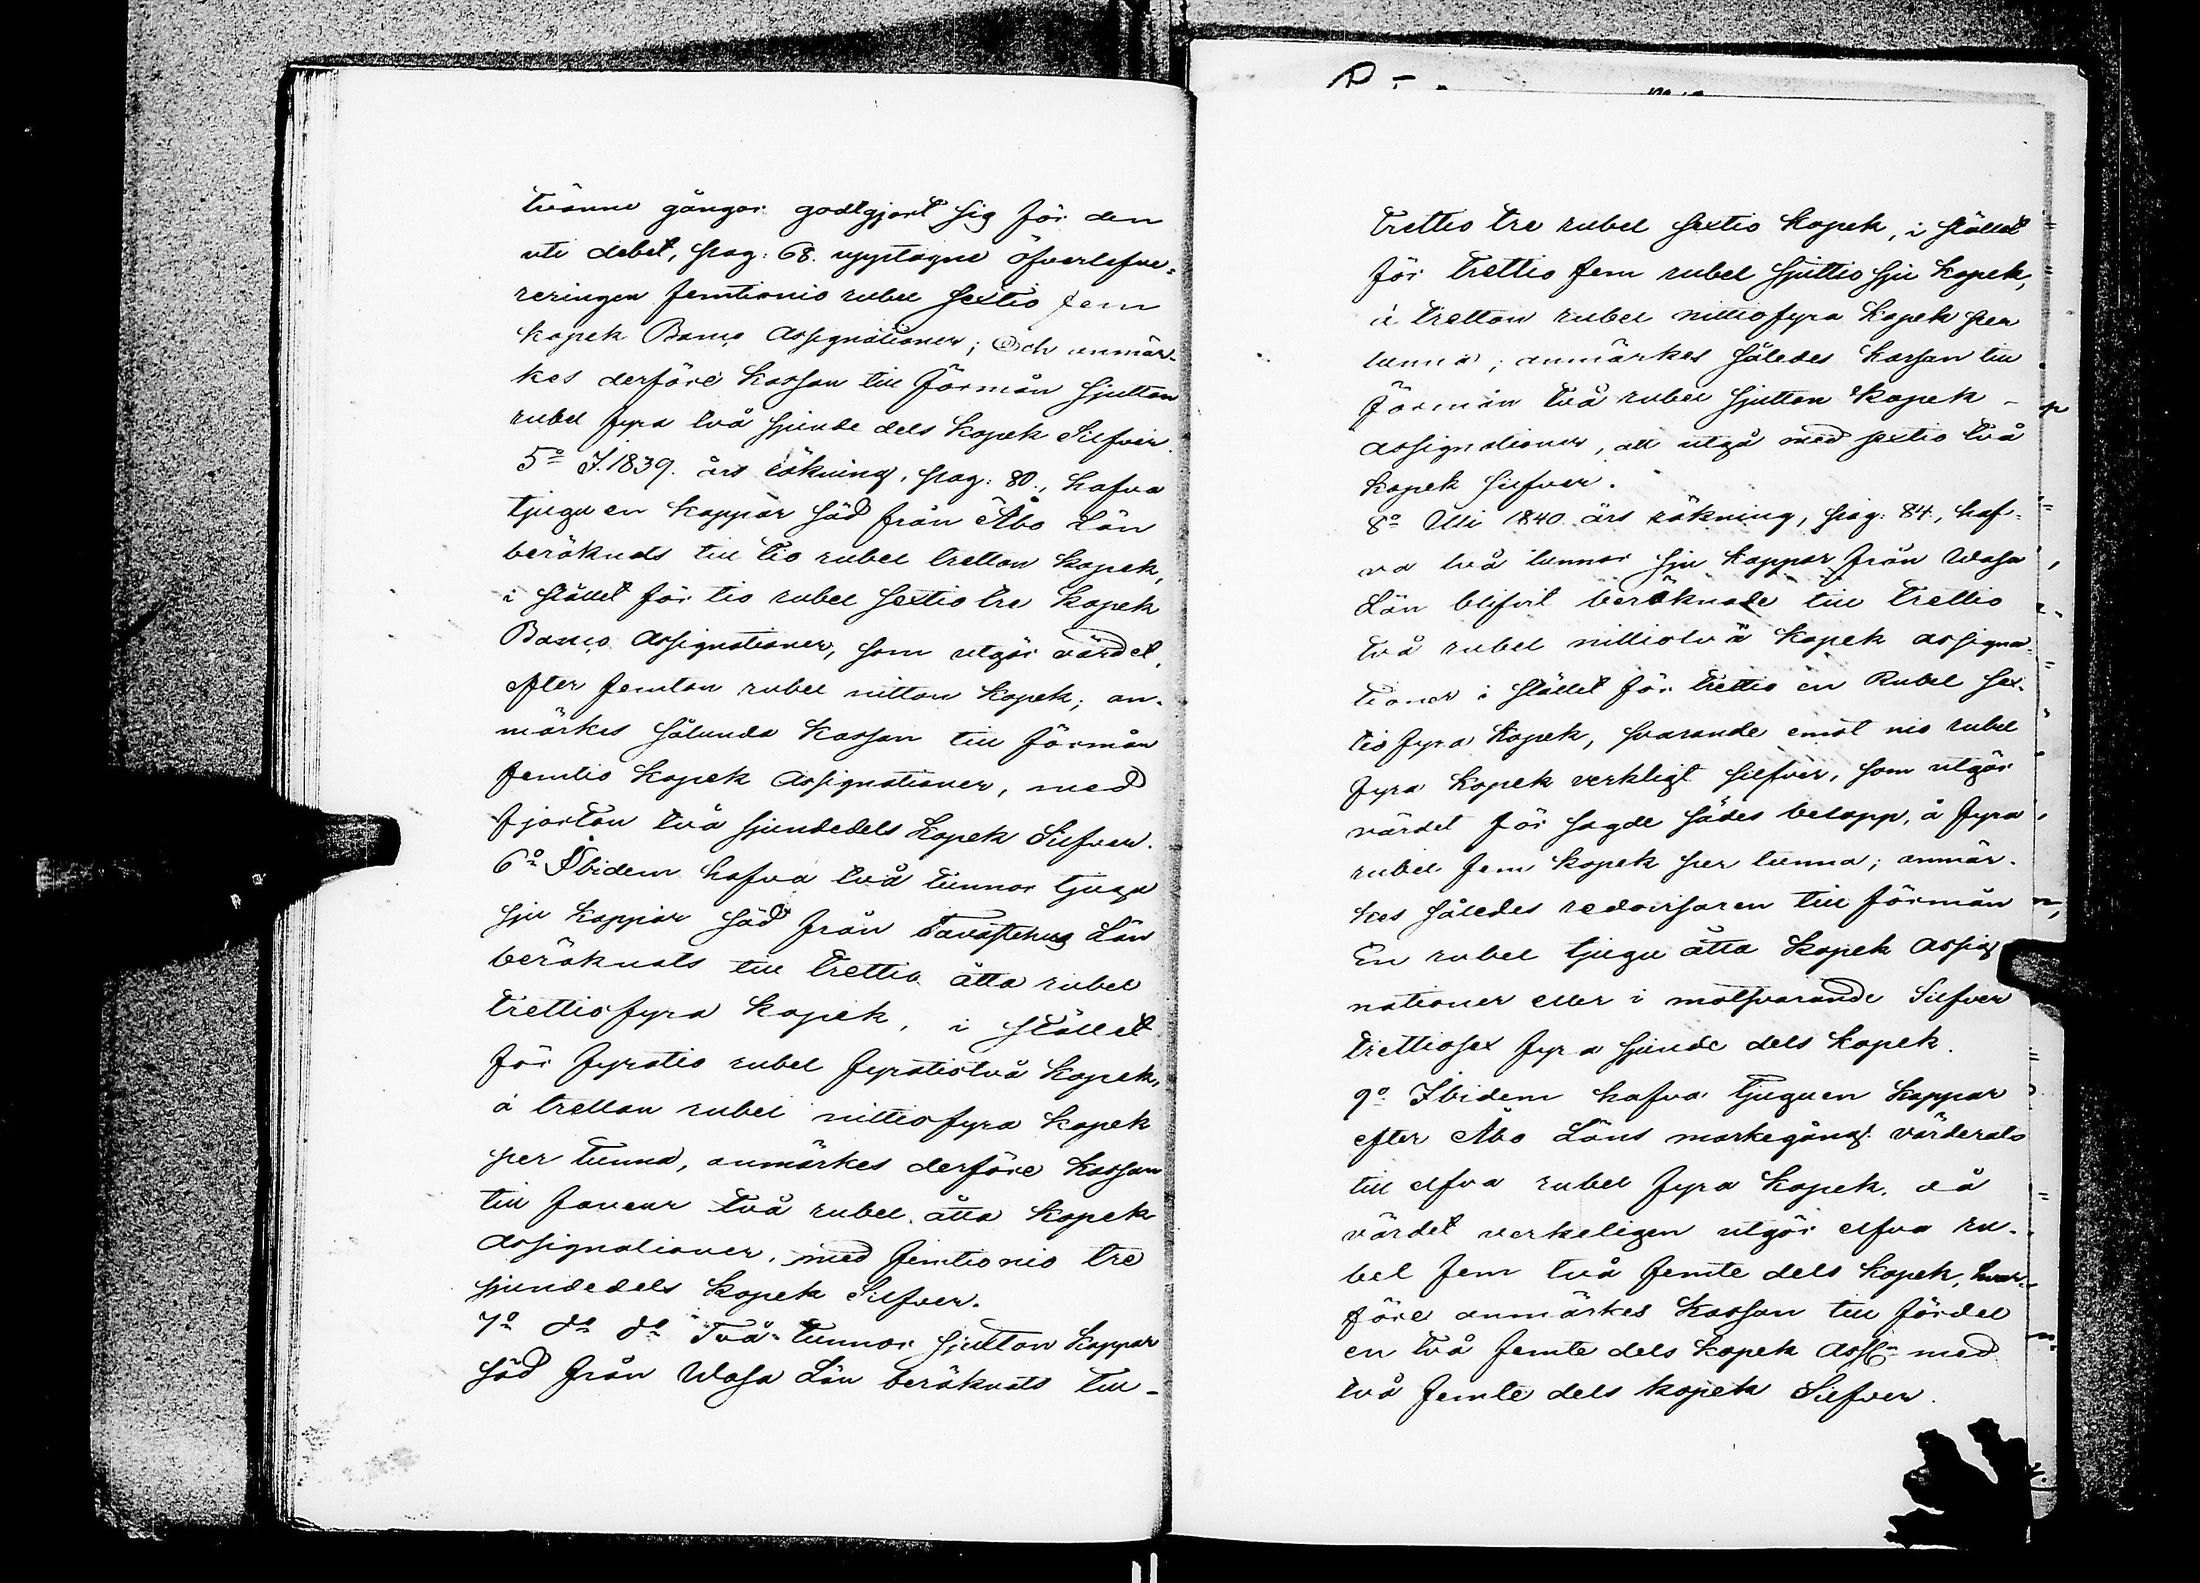 tvänne gångor godtgjort sig för den
uti debet, pag: 68. upptagne öfverlefve-
reringen femtionio rubel sextio fem
kopek Banco Assignationer; Och anmär-
kes derföre Kassan till Förmån sjutton
rubel fyra två sjunde dels kopek Silfver.
5o I. 1839. års räkning, pag: 80., hafva
tjuguen kappar säd från Åbo Län
beräknats till tio rubel tretton kopek,
i stället för tio rubel sextio tre kopek
Banco Assignationer, som utgör värdet,
efter femton rubel nitton kopek; an-
märkes sålunda Kassan till Förmån
femtio kopek Assignationer, med
fjorton två sjundedels kopek Silfver.
6o Ibidem hafva två tunnor tjugu
sju kappar säd från Tavastehus Län
beräknats till trettio åtta rubel
trettiofyra kopek, i stället
för fyratio rubel fyratiotvå kopek,
à tretton rubel nittiofyra kopek
per tunna, anmärkes derföre Kassan
till faveur två rubel åtta kopek
Assignationer, med femtionio tre
sjundedels kopek Silfver.
7o do do Två tunnor sjutton kappar
säd från Wasa Län beräknats till
trettio tre rubel sextio kopek, i stället
för trettio fem rubel sjuttio sju kopek,
à tretton rubel nittiofyra kopek per
tunna; anmärkes således Kassan till
Förmån två rubel sjutton kopek
assignationer, att utgå med sextio två
kopek silfver.
8o Uti 1840 års räkning, pag: 84, haf-
va två tunnor sju kappar från Wasa
Län blifvit beräknade till trettio
två rubel nittiotvå kopek assigna-
tioner i stället för trettio en Rubel sex-
tio fyra kopek, svarande emot nio rubel
fyra kopek verkligt silfver, som utgör
värdet för sagde sädes belopp, à fyra
rubel fem kopek per tunna; anmär-
kes således redovisaren till förmån
En rubel tjugu åtta kopek assig-
nationer eller i motsvarande Silfver
trettiosex fyra sjunde dels kopek.
9o Ibidem hafva tjuguen kappar
efter Åbo Läns markegång värderats
till elfva rubel fyra kopek, då
värdet verkeligen utgör elfva ru-
bel fem två femte dels kopek, hvar-
före anmärkes Kassan till fördel
en två femte dels kopek Assn med
två femte dels kopek Silfver.